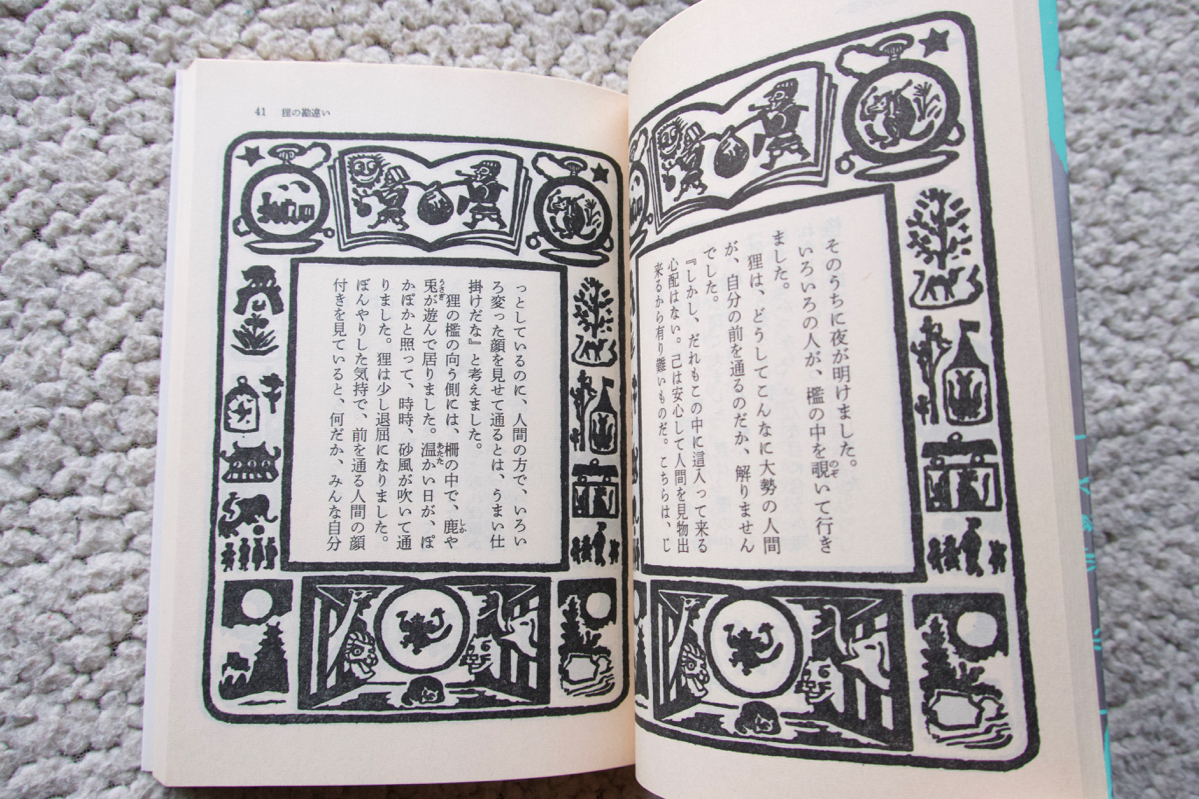 そのうちに夜が明けました。
いろいろの人が、檻の中を覗いて行き
のぞ
ました。
狸は、どうしてこんなに大勢の人間
が、自分の前を通るのだか、解りません
でした。
『しかし、だれもこの中に這入って来る
心配はない。己は安心して人間を見物出
来るから有り難いものだ。こちらは、じ
41 狸の勘違い
っとしているのに、人間の方で、いろい
ろ変った顔を見せて通るとは、うまい仕
掛けだな』と考えました。
狸の檻の向う側には、柵の中で、鹿や
しか
兎が遊んで居りました。温かい日が、ぽ
うさぎ
あたた
かぽかと照って、時時、砂風が吹いて通
りました。狸は少し退屈になりました。
ぼんやりした気持で、前を通る人間の顔
付きを見ていると、何だか、みんな自分